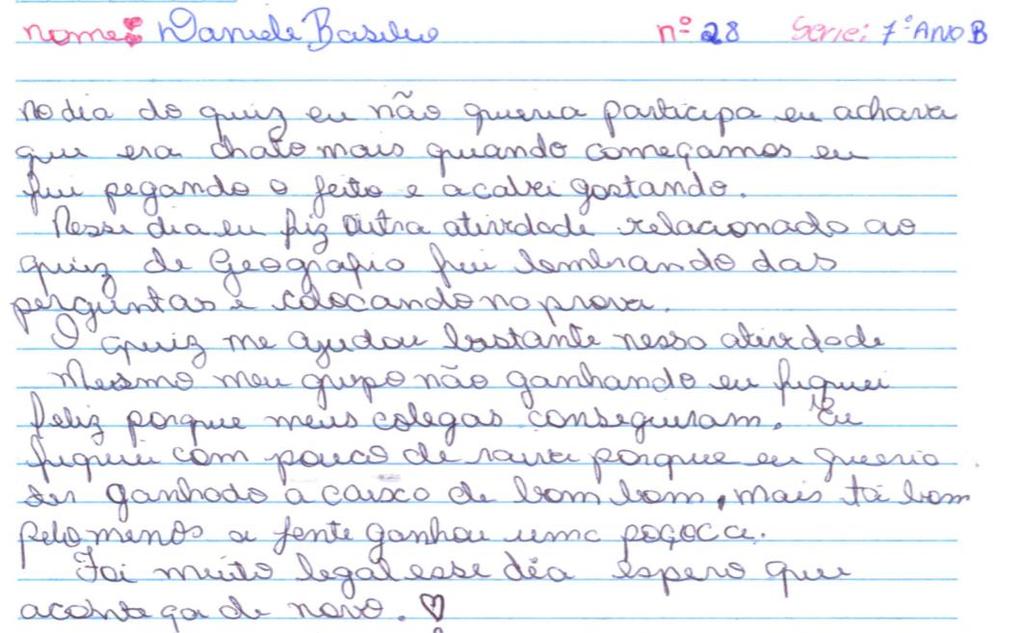 nome: Daniele Basilio nº 28 Serie: 7º Ano B
no dia do quiz eu não queria participa eu achava
que era chato mais quando começamos eu
fui pegando o jeito e acabei gostando.
Nesse dia eu fiz outra atividade relacionado ao
quiz de Geografia fui lembrando das
perguntas e colocando na prova.
O quiz me ajudou bastante nessa atividade
Mesmo meu grupo não ganhando eu fiquei
feliz porque meus colegas conseguiram. Eu
fiquei com pouco de raiva porque eu queria
ter ganhado a caixa de bom bom, mais tá bom
pelo menos a gente ganhou uma paçoca.
Foi muito legal esse dia espero que
aconteça de novo. ♡